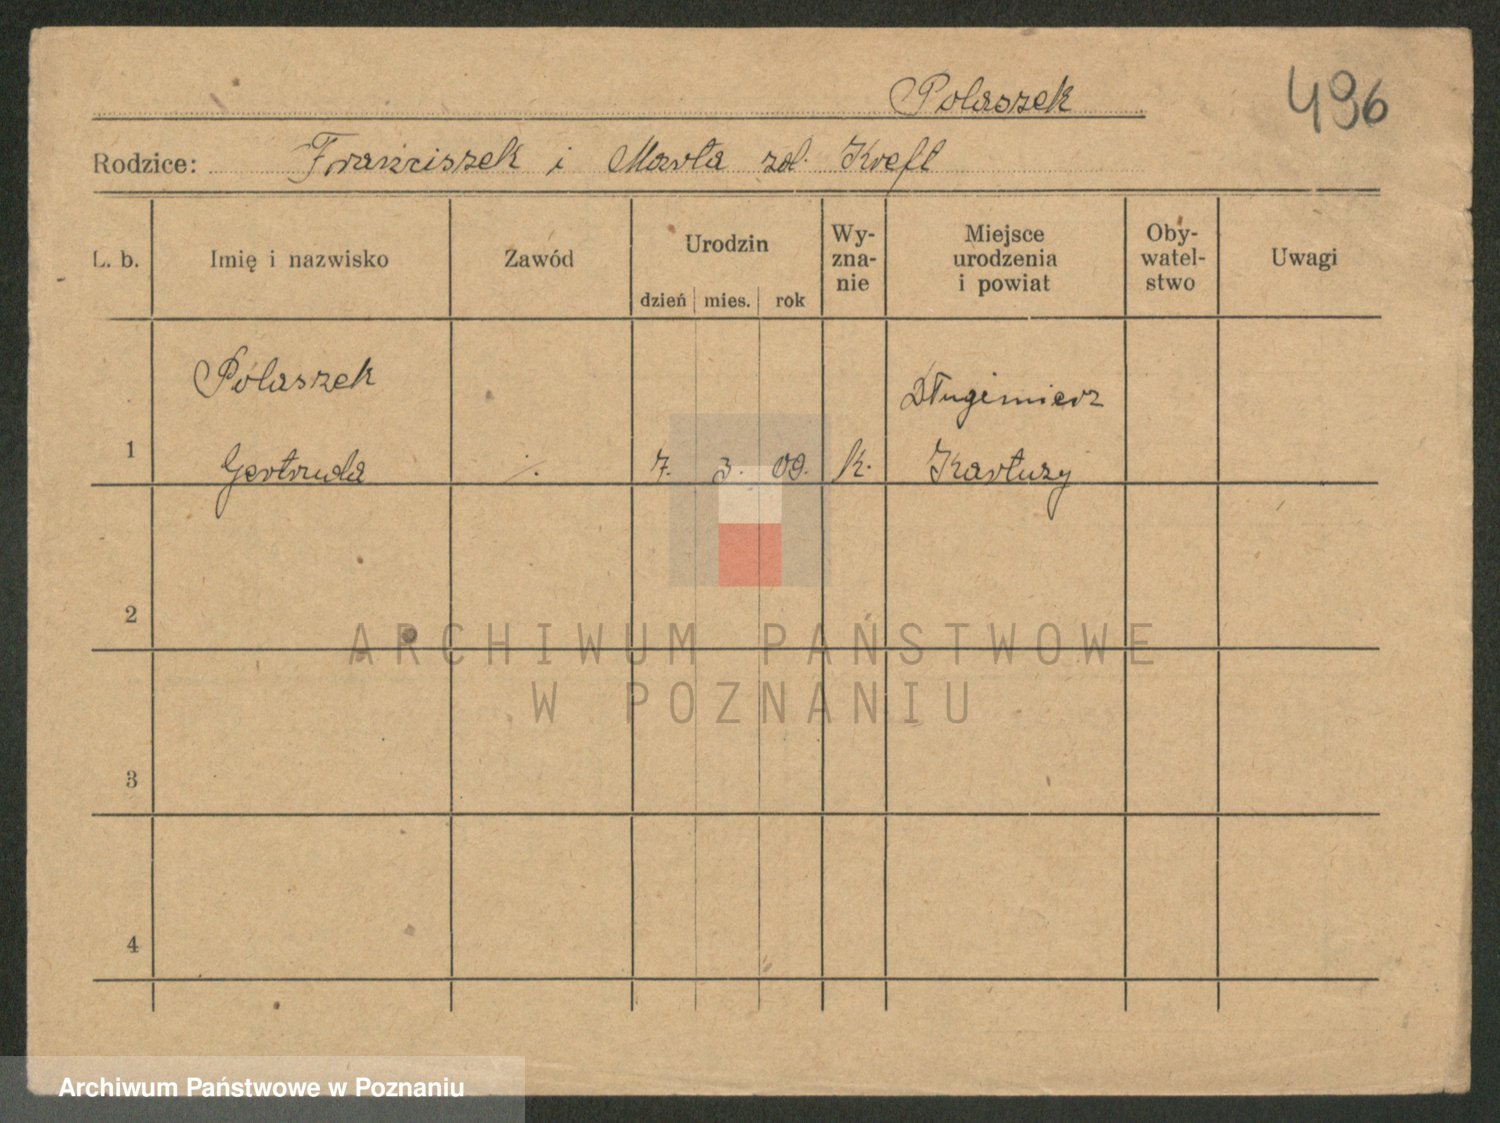 Polaszek
496
Rodzice: Franciszek i Marta zd. Kreft
L. b.
Imię i nazwisko
Zawód
Urodzin
dzień mies. rok
Wy-
zna-
nie
Miejsce
urodzenia
i powiat
Oby-
watel-
stwo
Uwagi
Polaszek
Długimierz
1 Gertruda ./. 7. 3. 09. k. Kartuzy
2
3
4
ARCHIWUM PAŃSTWOWE
W POZNANIU
Archiwum Państwowe w Poznaniu